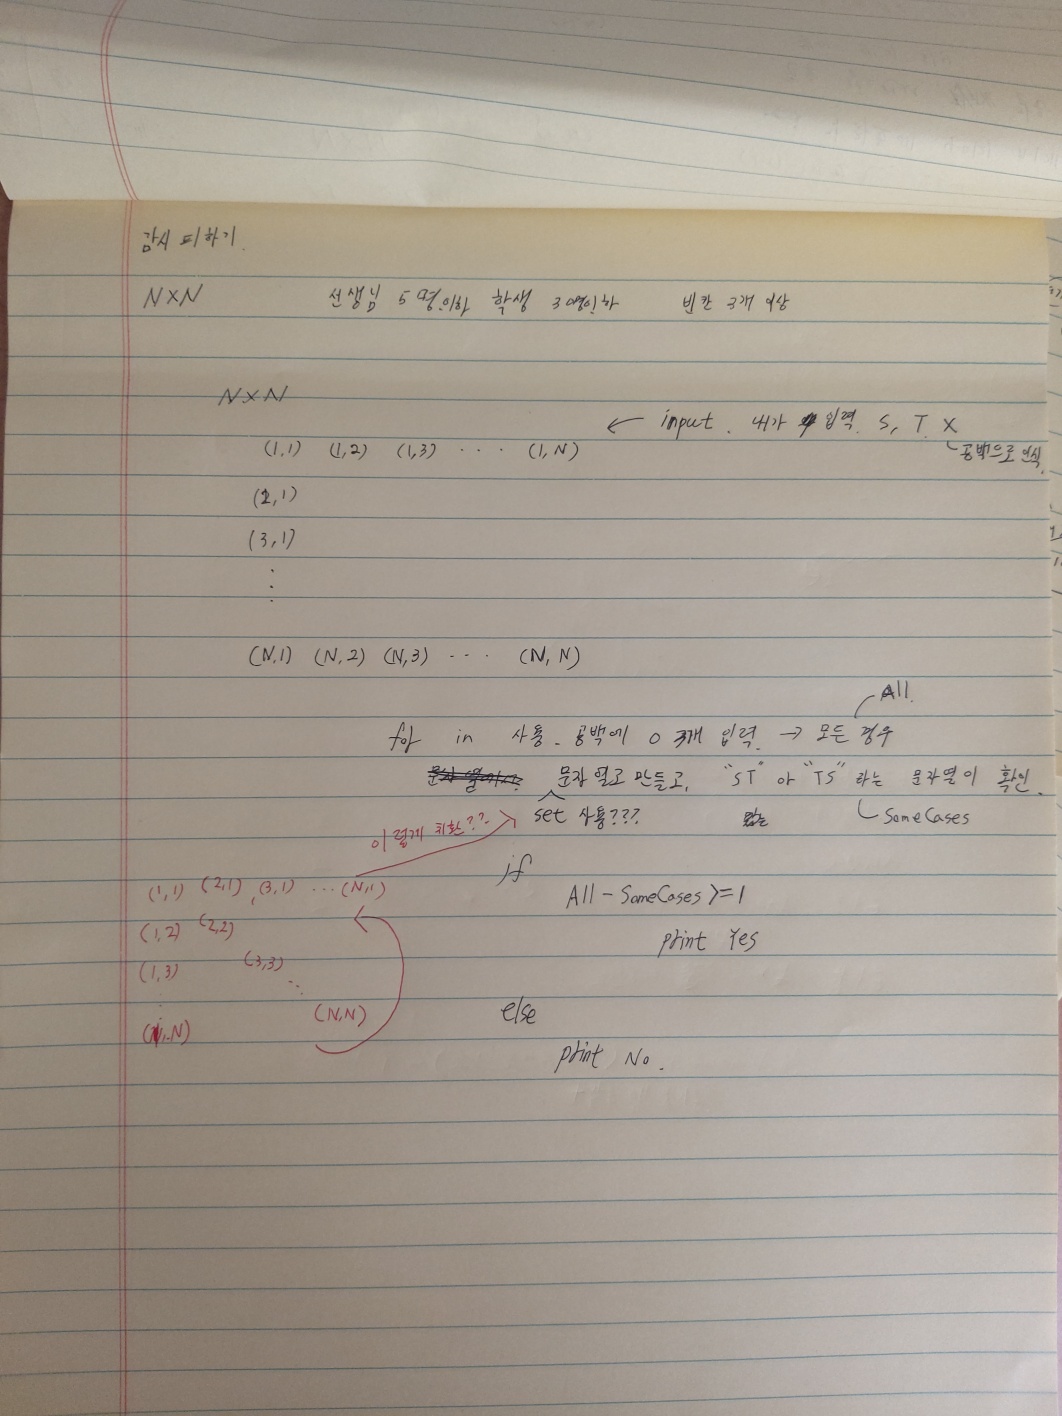 감시 피하기.
N×N 선생님 5명이하 학생 3명이하 빈칸 3개 이상
N×N
← input. 내가 입력. S, T. X
공백으로 인식.
(1,1) (1,2) (1,3) ··· (1,N)
(2,1)
(3,1)
⋮
(N,1) (N,2) (N,3) ··· (N,N)
All.
for in 사용. 공백에 O 3개 입력. → 모든 경우
문자열로 만들고, "ST" or "TS" 라는 문자열이 확인.
set 사용???
SomeCases
이렇게 치환???
if
(1,1) (2,1), (3,1) ··· (N,1)
All - SomeCases >= 1
(1,2) (2,2)
print Yes
(1,3) (3,3)
(N,N)
else
(1,N)
print No.